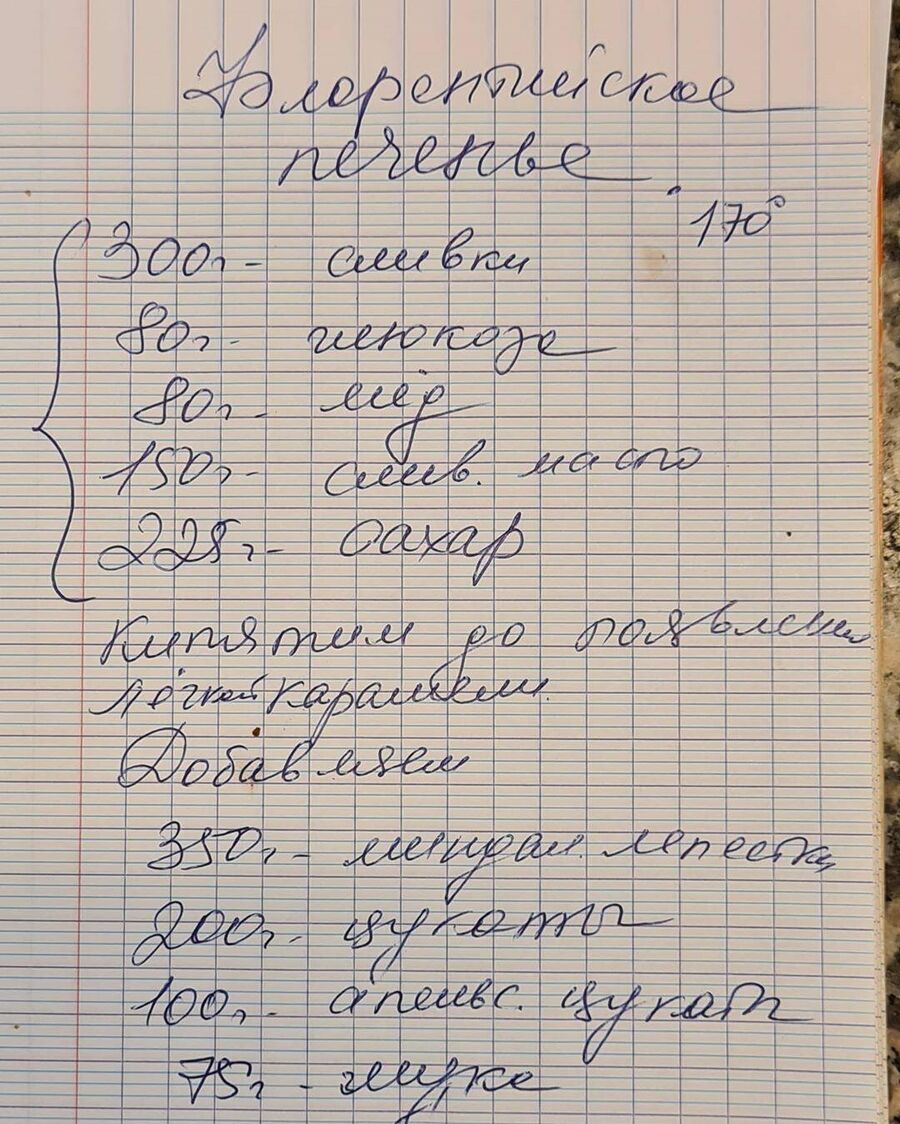 Флорентийское
печенье
170°
300г - сливки
80г - глюкоза
80г - мёд
150г - слив. масло
225г - сахар
Кипятим до появления
лёгкой карамели.
Добавляем
350г - миндал. лепестки
200г - цукаты
100г - апельс. цукаты
75г - мука